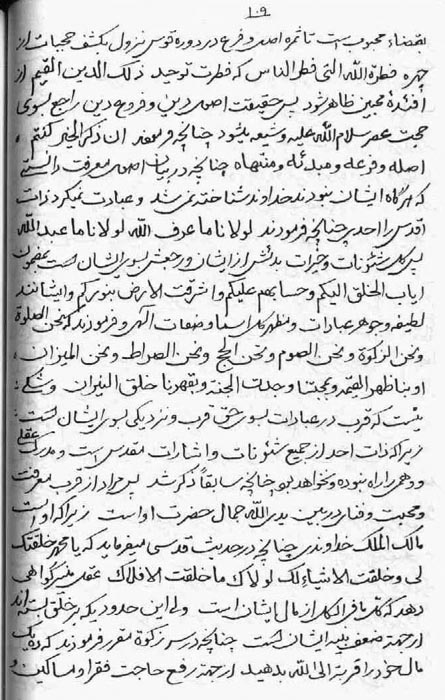 ۱۰۹
بقضاء محبوب است تا ثمره اصل و فرع در دوره قوس نزول بکشف حجبات از
چهره فطرة الله التی فطر الناس که فطرت توحید ذلک الدین القیم از
افئدهٔ محبین ظاهر شود پس حقیقت اصول دین و فروع دین راجع بسوی
حجت عصر سلام الله علیه و شیعه میشود چنانچه فرموده ان ذکر الخیر کنتم
اصله و فرعه و مبدئه و منتهاه چنانچه در بیان اصول معرفت دانستی
که هرگاه ایشان نبودند خداوند شناخته نمی شد و عبادت نمیکرد ذات
اقدس را احدی چنانچه فرمودند لولانا ما عرف الله لولانا ما عبد الله
پس کل شئونات و خیرات بدئش از ایشان و رجعش بسوی ایشان است بمضمون
ایاب الخلق الیکم و حسابهم علیکم و اشرقت الارض بنورکم و ایشانند
لطیفه و جوهر عبادات و مظهر کل اسما و صفات الهی و فرمودند که نحن الصلوة
و نحن الزکوة و نحن الصوم و نحن الحج و نحن الصراط و نحن المیزان
او بنا ظهر القیمه و بمحبتنا وجدت الجنة و بقهرنا خلق النیران و شکی
نیست که قرب در عبادات بسوی حق قرب و نزدیکی بسوی ایشان است
زیرا که ذات احد از جمیع شئونات و اشارات مقدس است و مدرک عقلی
و وهمی را راه نبوده و نخواهد بود چنانچه سابقاً ذکر شد پس مراد از قرب معرفت
و محبت و فنای در بین یدی الله جمال حضرت او است زیرا که او است
مالک الملک خداوندی چنانچه در حدیث قدسی میفرماید که یا محمد خلقتک
لی و خلقت الاشیاء لک لولاک ما خلقت الافلاک عقل منیر گواهی
دهد که کل مافی الملک از مال ایشان است ولی این حدودیکه بر خلق بسته اند
از جهة ضعف بنیه ایشان است چنانچه در سر زکوة مقرر فرمودند که ده یک
مال خود را قربة الی الله بدهید از جهة رفع حاجت فقرا و مساکین و